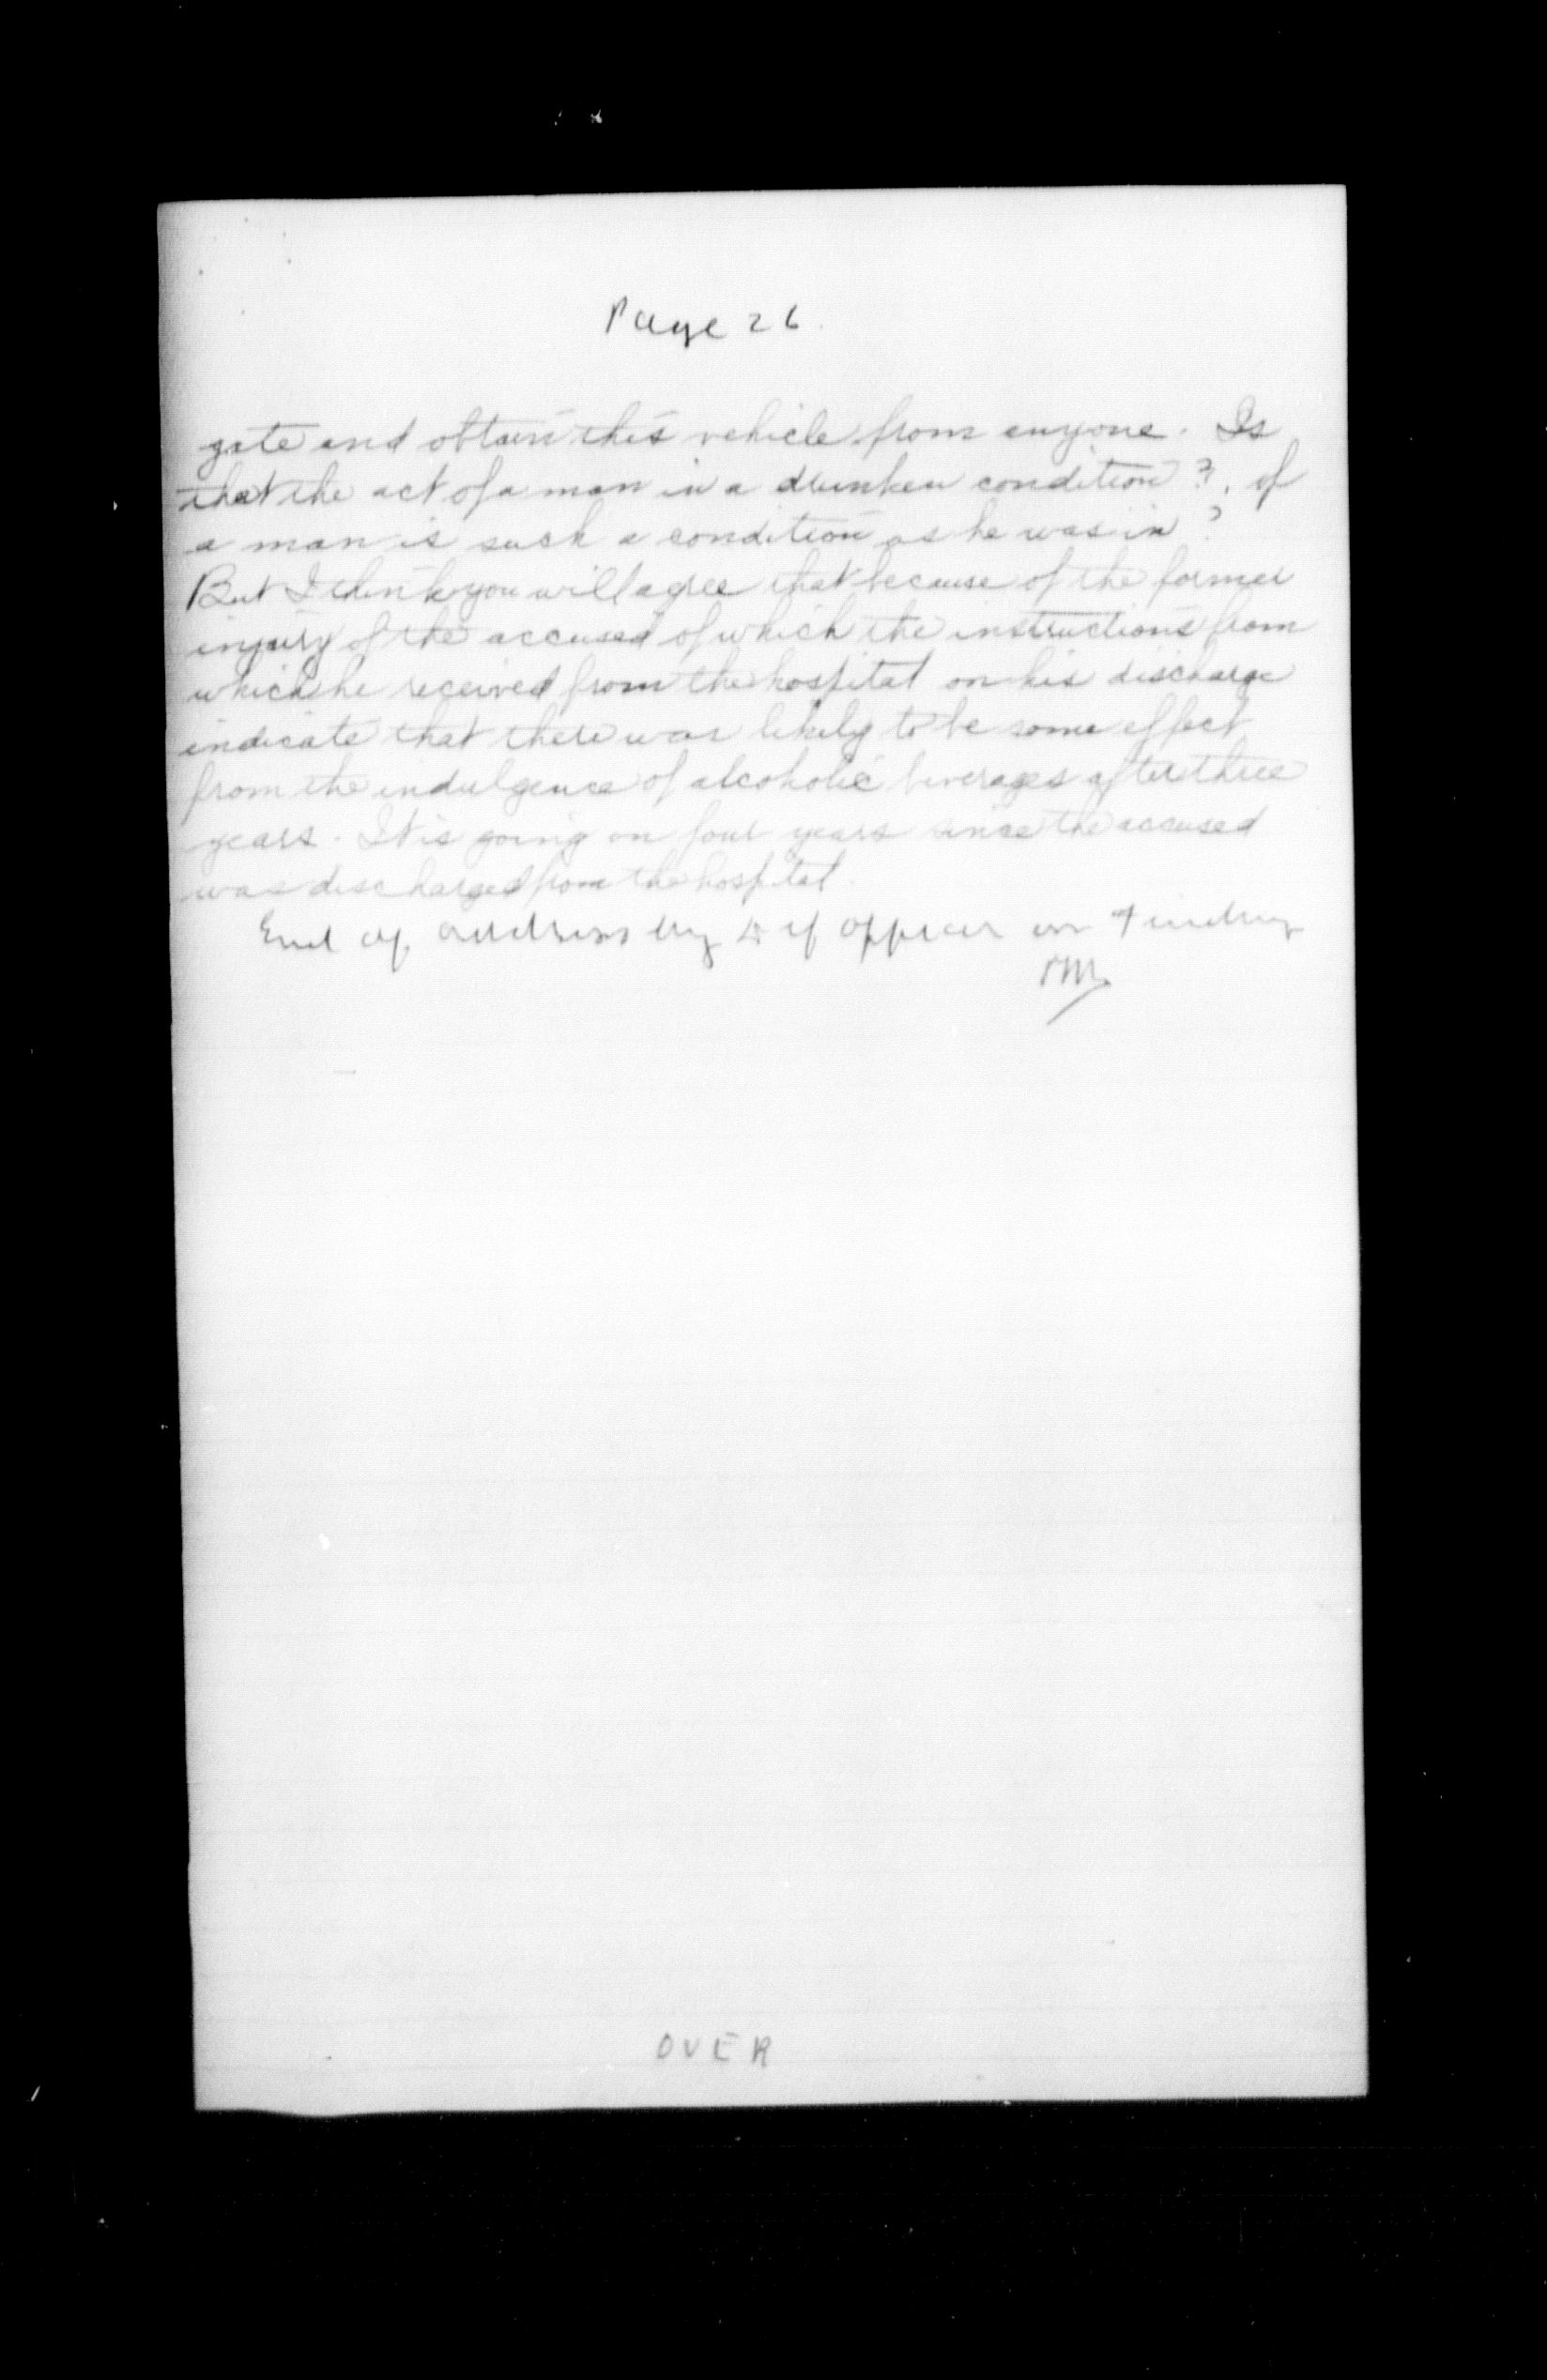 Page 26.
gate and obtain this vehicle from anyone. Is
that the act of a man in a drunken condition?, of
a man is such a condition as he was in?
But I think you will agree that because of the former
injury of the accused of which the instructions from
which he received from the hospital on his discharge
indicate that there was likely to be some effect
from the indulgence of alcoholic beverages after three
years. It is going on four years since the accused
was discharged from the hospital.
End of address by def officer on finding
OVER